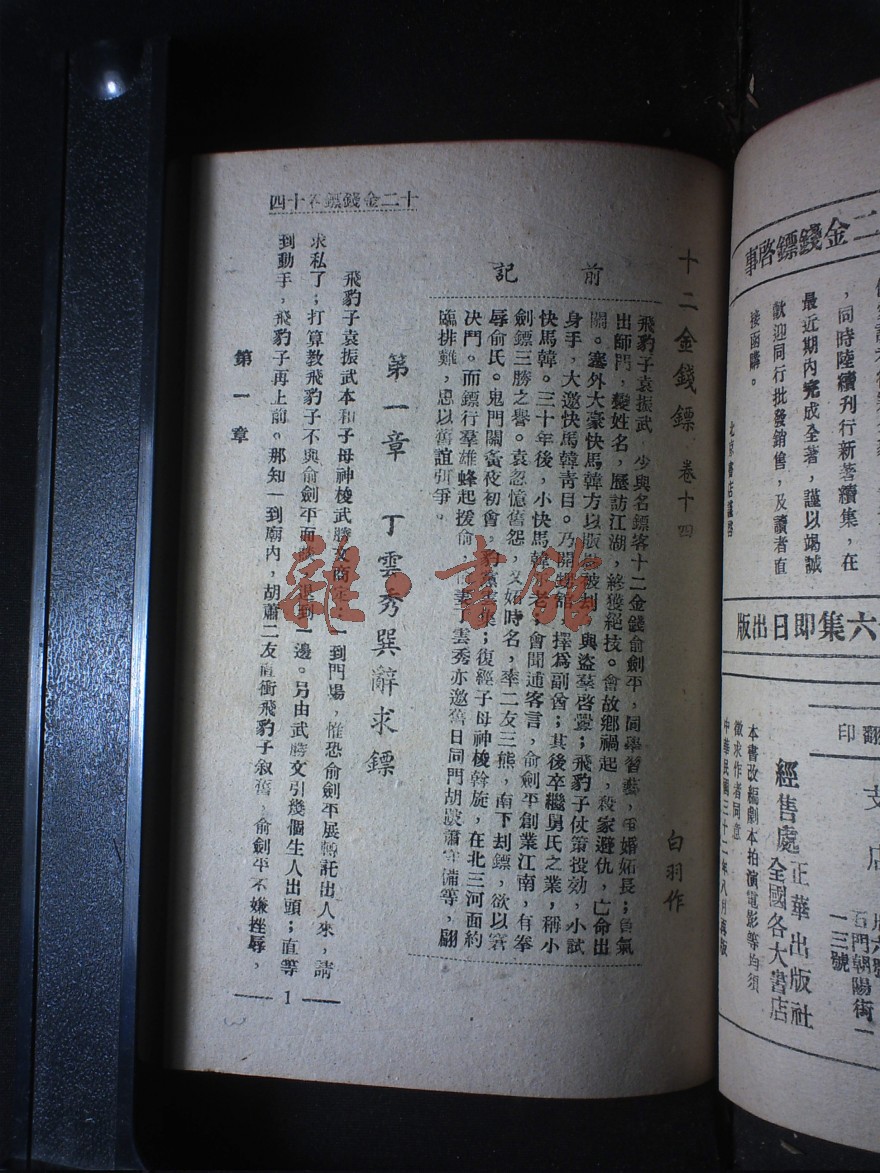 二金錢鏢啓事
，同時陸續刊行新著續集，在
最近期內完成全著，謹以竭誠
歡迎同行批發銷售，及讀者直
接函購。
六集即日出版
翻印
經售處 正華出版社
全國各大書店
石門朝陽街一
一三號
本書改編劇本拍演電影等均須
徵求作者同意
中華民國三十二年八月再版
十二金錢鏢 卷十四
白羽作
前記
飛豹子袁振武 少與名鏢客十二金錢俞劍平，同學習藝，爭婚妬長；負氣
出師門，變姓名，歷訪江湖，終獲絕技。會故鄉禍起，殺家避仇，亡命出
關。塞外大豪快馬韓方以版被刦與盜羣啓釁；飛豹子仗策投効，小試
身手，大邀快馬韓青目。乃開甥舘擇爲副酋；其後卒繼舅氏之業，稱小
快馬韓。三十年後，小快馬韓老；會聞通客言，俞劍平創業江南，有拳
劍鏢三勝之譽。袁忽憶舊怨，又妬時名，率二友三熊，南下刦鏢，欲以窘
辱俞氏。鬼門關夤夜初會，豹黨羣集；復經子母神梭斡旋，在北三河面約
决鬥。而鏢行羣雄蜂起援俞，妻丁雲秀亦邀舊日同門胡跛蕭守備等，翩
臨排難，思以舊誼弭爭。
第一章 丁雲秀巽辭求鏢
飛豹子袁振武本和子母神梭武勝文商定；一到鬥場，惟恐俞劍平展轉託出人來，請
求私了；打算教飛豹子不與俞劍平面，退到一邊。另由武勝文引幾個生人出頭；直等
到動手，飛豹子再上前。那知一到廟內，胡蕭二友直衝飛豹子叙舊，俞劍平不嫌挫辱，
十二金錢鏢卷十四
第一章
1
雜·書館